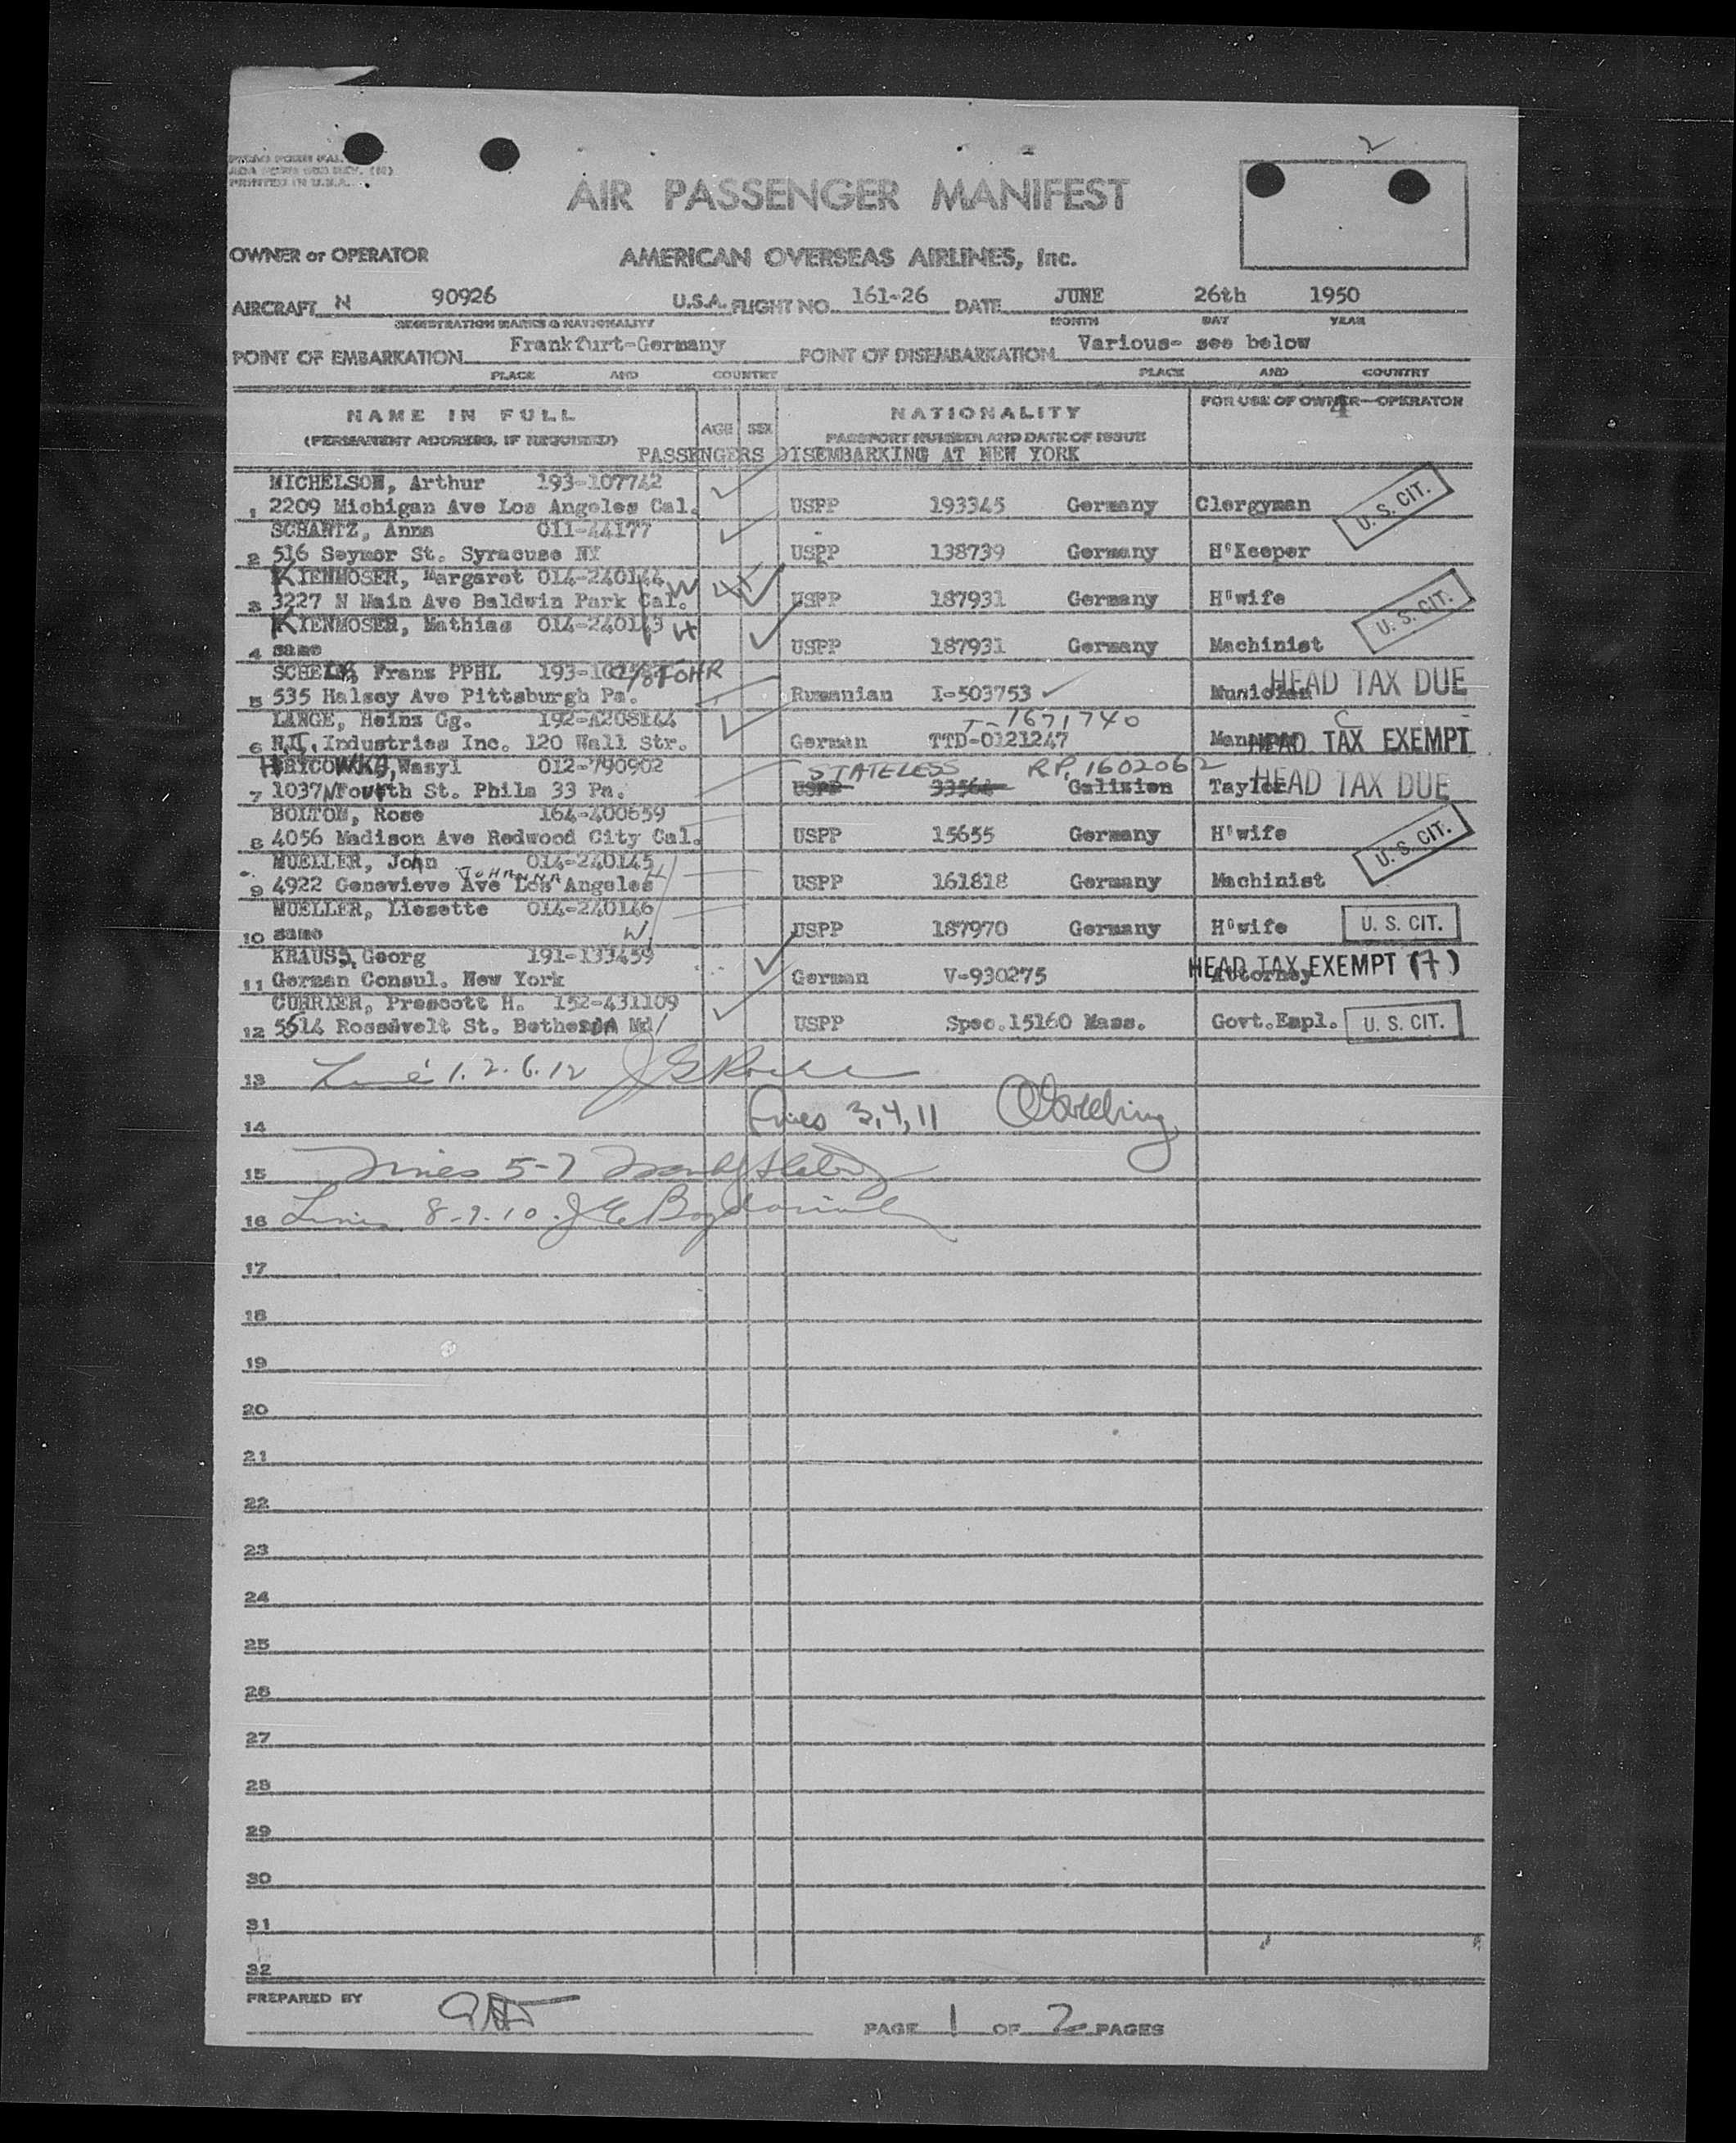 PRINTED IN U.S.A.
2
AIR PASSENGER MANIFEST
OWNER or OPERATOR AMERICAN OVERSEAS AIRLINES, Inc.
AIRCRAFT N 90926 U.S.A. FLIGHT NO. 161-26 DATE JUNE 26th 1950
REGISTRATION MARKS & NATIONALITY MONTH DAY YEAR
POINT OF EMBARKATION Frankfurt-Germany POINT OF DISEMBARKATION Various- see below
PLACE AND COUNTRY PLACE AND COUNTRY
NAME IN FULL AGE SEX NATIONALITY FOR USE OF OWNER—OPERATOR
4
(PERMANENT ADDRESS, IF REQUIRED) PASSPORT NUMBER AND DATE OF ISSUE
PASSENGERS DISEMBARKING AT NEW YORK
MICHELSON, Arthur 193-107742
1 2209 Michigan Ave Los Angeles Cal. USPP 193345 Germany Clergyman U. S. CIT.
SCHANTZ, Anna 011-44177
2 516 Seymor St. Syracuse NY USPP 138739 Germany H'Keeper
KIENMOSER, Margaret 014-240144 W
3 3227 N Main Ave Baldwin Park Cal. USPP 187931 Germany H'wife U. S. CIT.
KIENMOSER, Mathias 014-240143 H
4 same USPP 187931 Germany Machinist
Franz PPHL
5 535 Halsey Ave Pittsburgh Pa. Rumanian I-503753 HEAD TAX DUE
LANGE, Heinz Gg. 192-A208144 I-1671740 C
6 Industries Inc. 120 Wall Str. German TTD-0121247 HEAD TAX EXEMPT
Wasyl 012-790902 STATELESS R.P. 1602062
7 1037 N Fourth St. Phila 33 Pa. USPP 33564 Galizien Taylor HEAD TAX DUE
BOLTON, Rose 164-400659
8 4056 Madison Ave Redwood City Cal. USPP 15655 Germany H'wife U. S. CIT.
MUELLER, John 014-240145
JOHANNA
9 4922 Genevieve Ave Los Angeles H USPP 161818 Germany Machinist
MUELLER, Liesette 014-240146
10 same W USPP 187970 Germany H'wife U. S. CIT.
KRAUSS, Georg 191-133459
11 German Consul. New York German V-930275 Attorney HEAD TAX EXEMPT (7)
CURRIER, Prescott H. 152-431109
12 5614 Roosevelt St. Bethesda Md/ USPP Spec.15160 Mass. Govt.Empl. U. S. CIT.
13 1. 2. 6. 12
14 Lines 3, 4, 11
15 Lines 5-7
16 Lines 8-9-10
17
18
19
20
21
22
23
24
25
26
27
28
29
30
31
32
PREPARED BY
PAGE 1 OF 2 PAGES